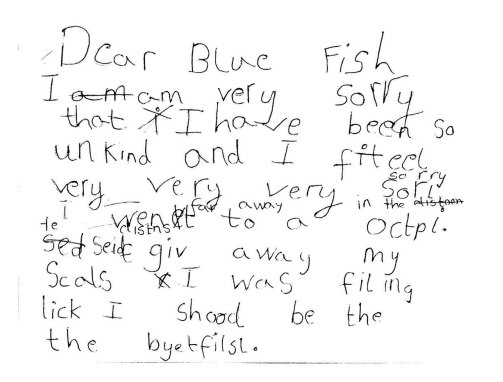 Dear Blue Fish
I am am very sorry
that I I have been so
unkind and I feel
very very very sorry
I went far away in the distns to a octpl.
He Seid giv away my
Scals I was filing
lick I shood be the
the byetfilsl.